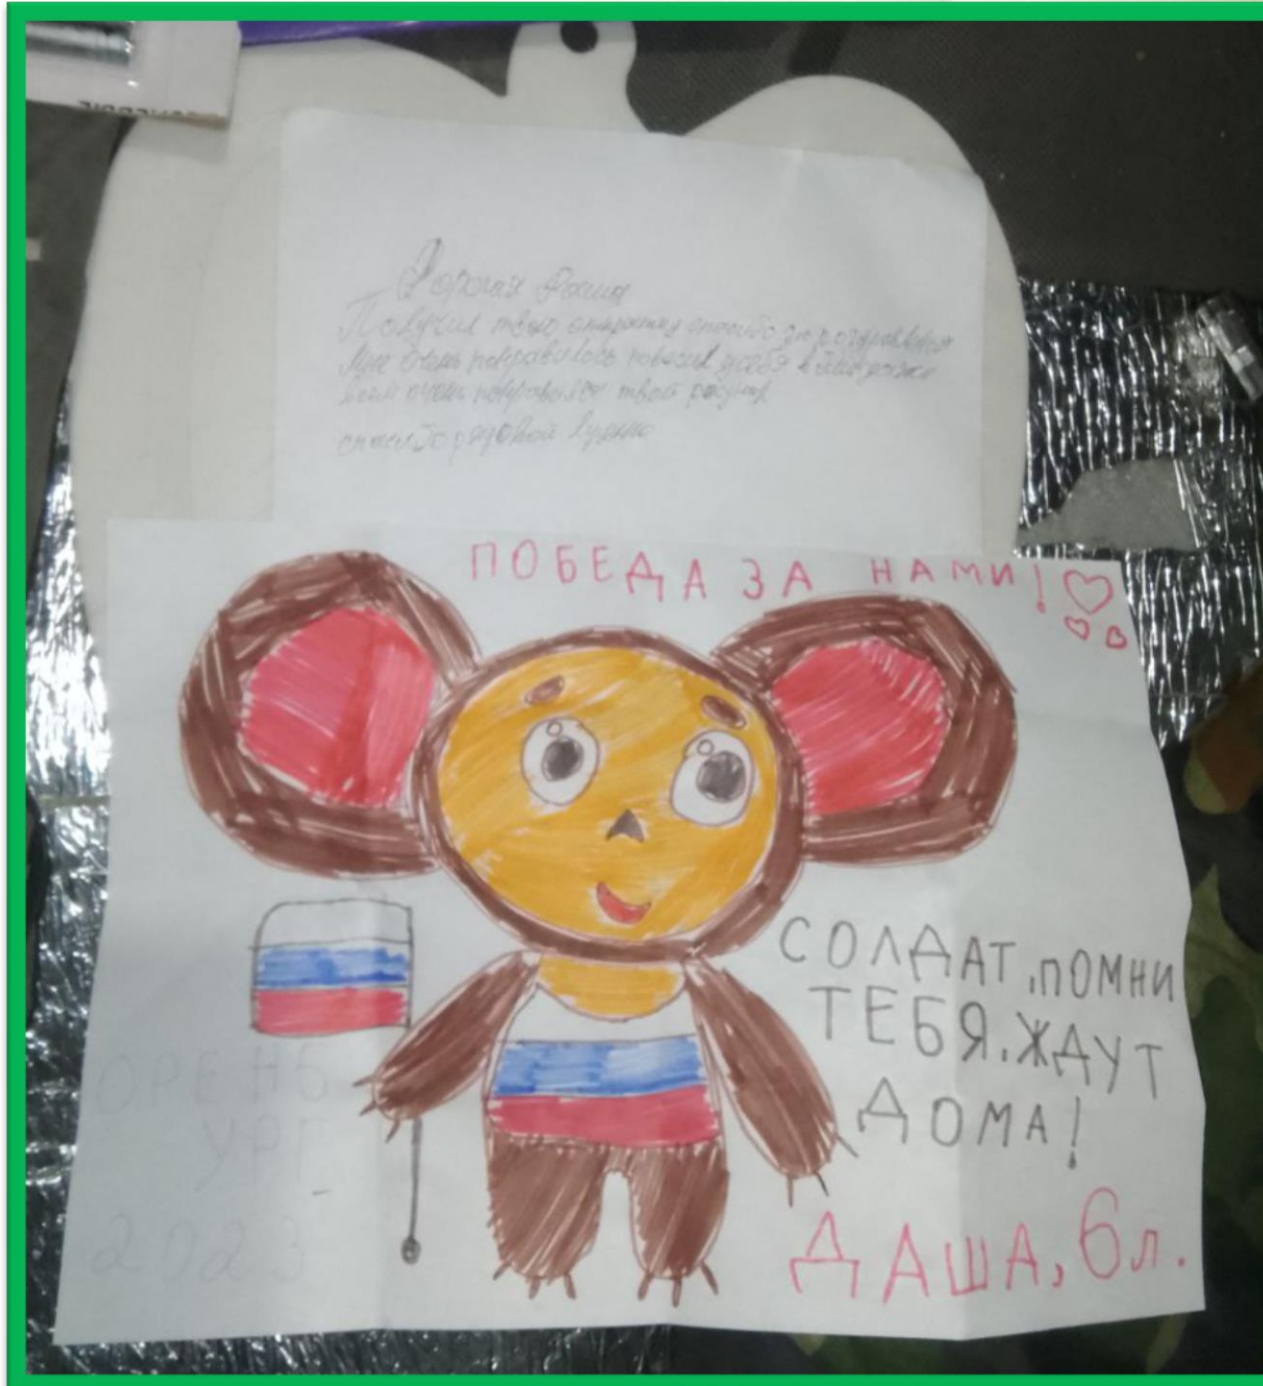 Дорогая Даша
Получил твою открытку спасибо за поздравления
Мне очень понравилось повесил у себя в блиндаже
всем очень понравился твой рисунок
спасибо рядовой
ПОБЕДА ЗА НАМИ!
СОЛДАТ, ПОМНИ
ТЕБЯ ЖДУТ
ДОМА!
ОРЕНБ
УРГ
2023
ДАША, 6 л.